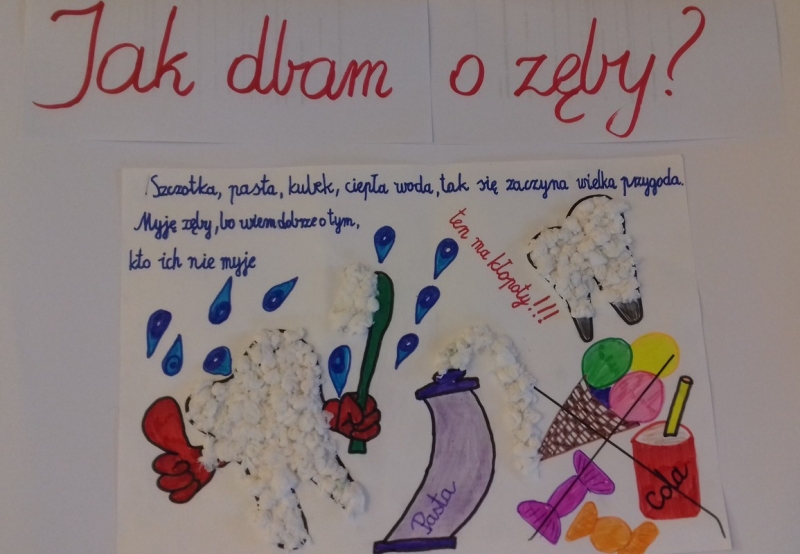 Jak dbam o zęby?
Szczotka, pasta, kubek, ciepła woda, tak się zaczyna wielka przygoda.
Myję zęby, bo wiem dobrze o tym,
kto ich nie myje
ten ma kłopoty!!!
Pasta
Cola